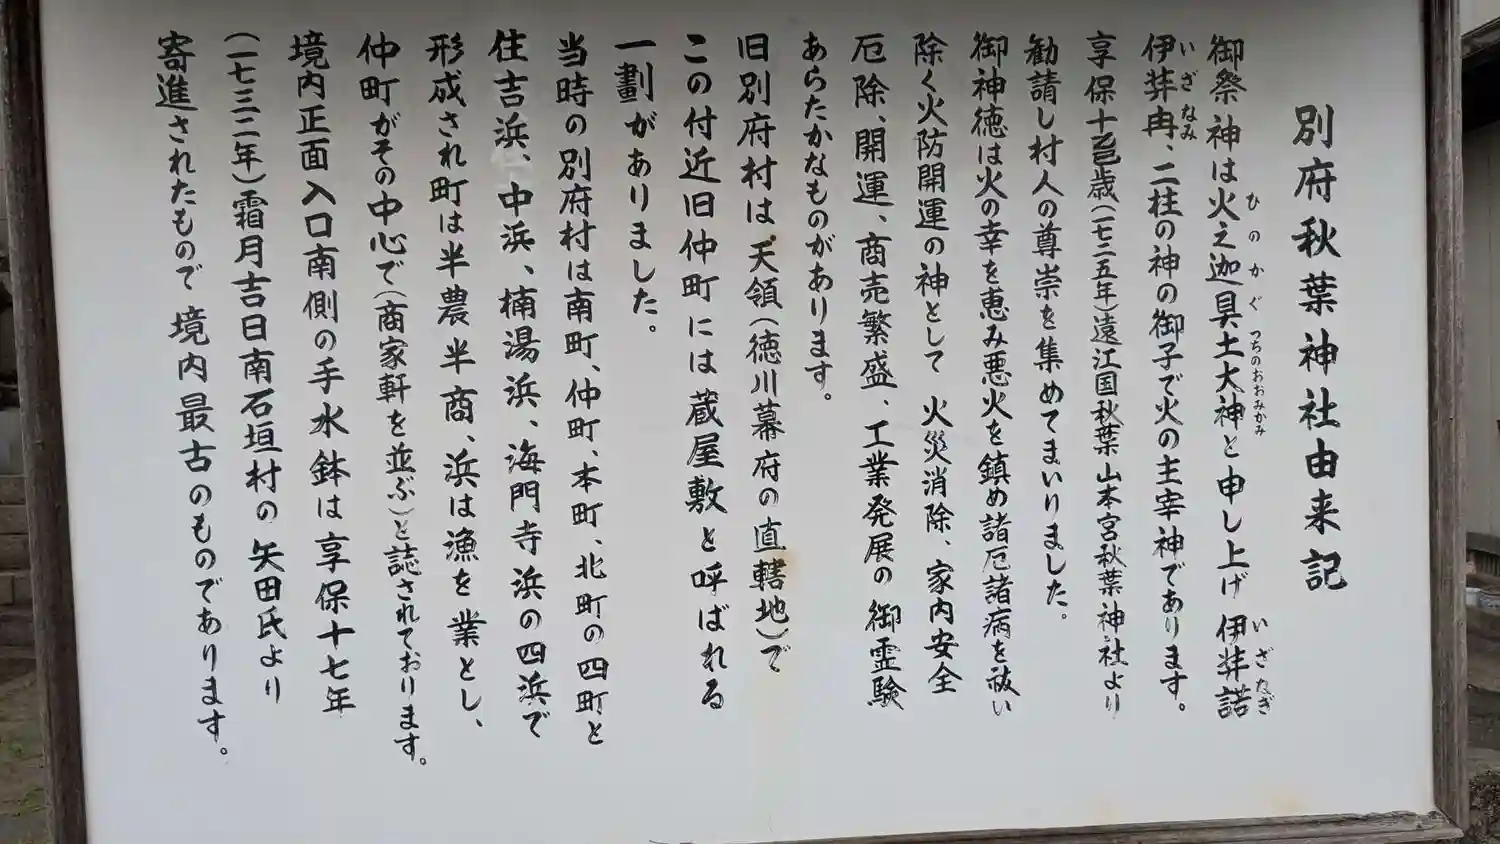 別府秋葉神社由来記
御祭神は火之迦具土大神と申し上げ 伊弉諾
ひのかぐつちのおおみかみ
いざなぎ
伊弉冉、二柱の神の御子で火の主宰神であります。
いざなみ
享保十乙巳歳(一七二五年)遠江国秋葉山本宮秋葉神社より
勧請し村人の尊崇を集めてまいりました。
御神徳は火の幸を恵み悪火を鎮め諸厄諸病を祓い
除く火防開運の神として 火災消除、家内安全
厄除、開運、商売繁盛、工業発展の 御霊験
あらたかなものがあります。
旧別府村は天領(徳川幕府の直轄地)で
この付近旧仲町には蔵屋敷と呼ばれる
一劃がありました。
当時の別府村は南町、仲町、本町、北町の四町と
住吉浜、中浜、楠湯浜、海門寺浜の四浜で
形成され町は半農半商、浜は漁を業とし、
仲町がその中心で(商家軒を並ぶ)と誌されております。
境内正面入口南側の手水鉢は享保十七年
(一七三二年)霜月吉日南石垣村の矢田氏より
寄進されたもので 境内最古のものであります。